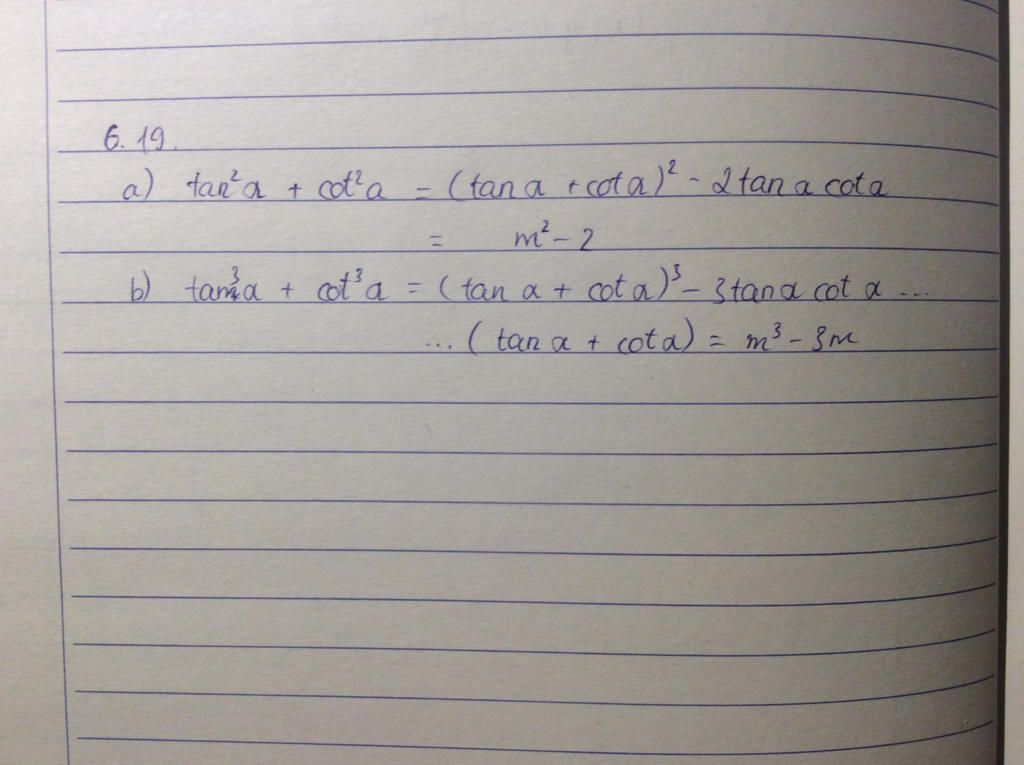 6.19.
a) tan²α + cot²α = (tan α + cot α)² - 2 tan α cot α
= m² - 2
b) tan³α + cot³α = (tan α + cot α)³ - 3 tan α cot α ...
... (tan α + cot α) = m³ - 3m